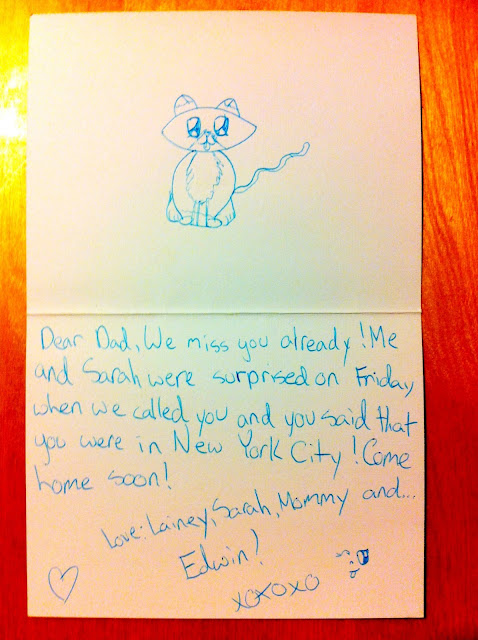 Dear Dad, We miss you already! Me
and Sarah were surprised on Friday
when we called you and you said that
you were in New York City! Come
home soon!
Love: Lainey, Sarah, Mommy and...
Edwin!
xoxoxo